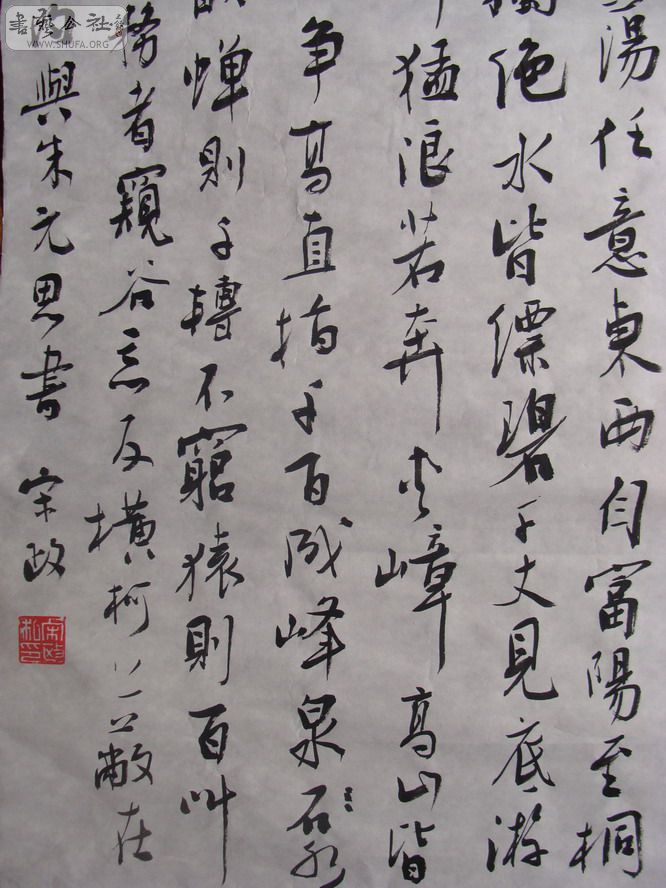 書藝公社
WWW.SHUFA.ORG
任意東西自富陽至桐
絕水皆縹碧千丈見底游
猛浪若奔夾嶂高山皆
争高直指千百成峰泉石
蟬則千轉不窮猿則百叫
務者窺谷忘反橫柯上蔽在
與朱元思書 宋政